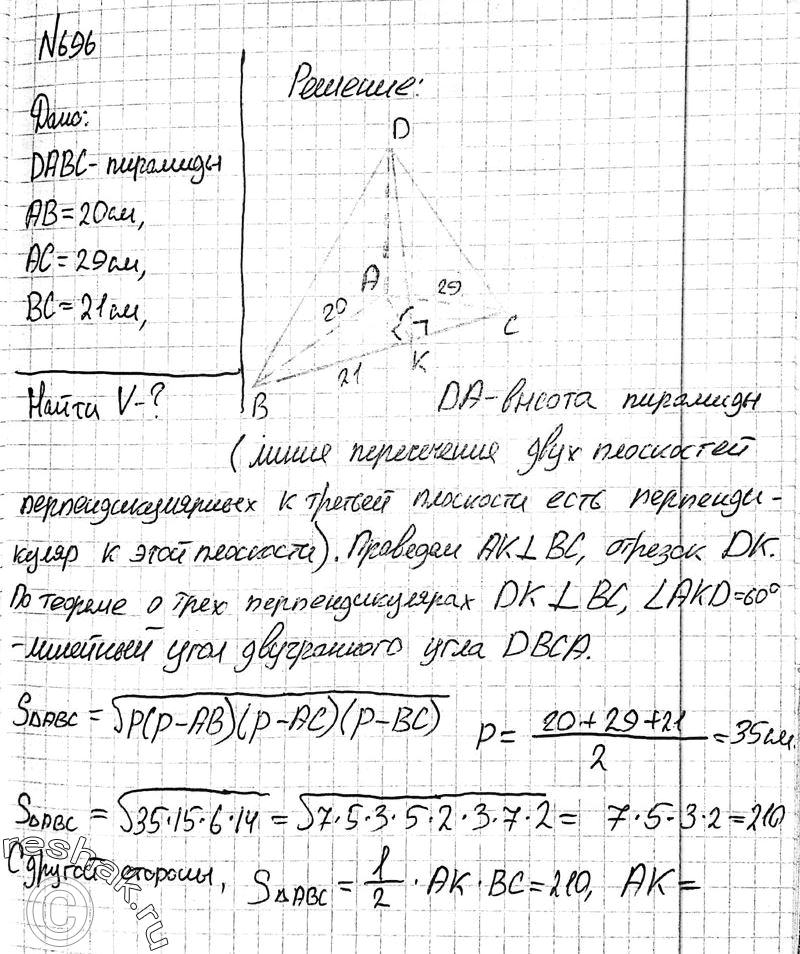 N696
Решение:
Дано:
DABC - пирамиды
AB = 20 см,
AC = 29 см,
BC = 21 см,
Найти V-?
D
A
20
29
21
K
C
B
DA - высота пирамиды
(линия пересечения двух плоскостей
перпендикулярных к третьей плоскости есть перпенди-
куляр к этой плоскости). Проведем AK⊥BC, отрезок DK.
По теореме о трех перпендикулярах DK⊥BC, ∠AKD=60°
- линейный угол двугранного угла DBCA.
S△ABC = √P(P-AB)(P-AC)(P-BC) P = (20+29+21)/2 = 35 см.
S△ABC = √35·15·6·14 = √7·5·3·5·2·3·7·2 = 7·5·3·2=210
С другой стороны, S△ABC = 1/2 · AK · BC = 210, AK =
© reshak.ru